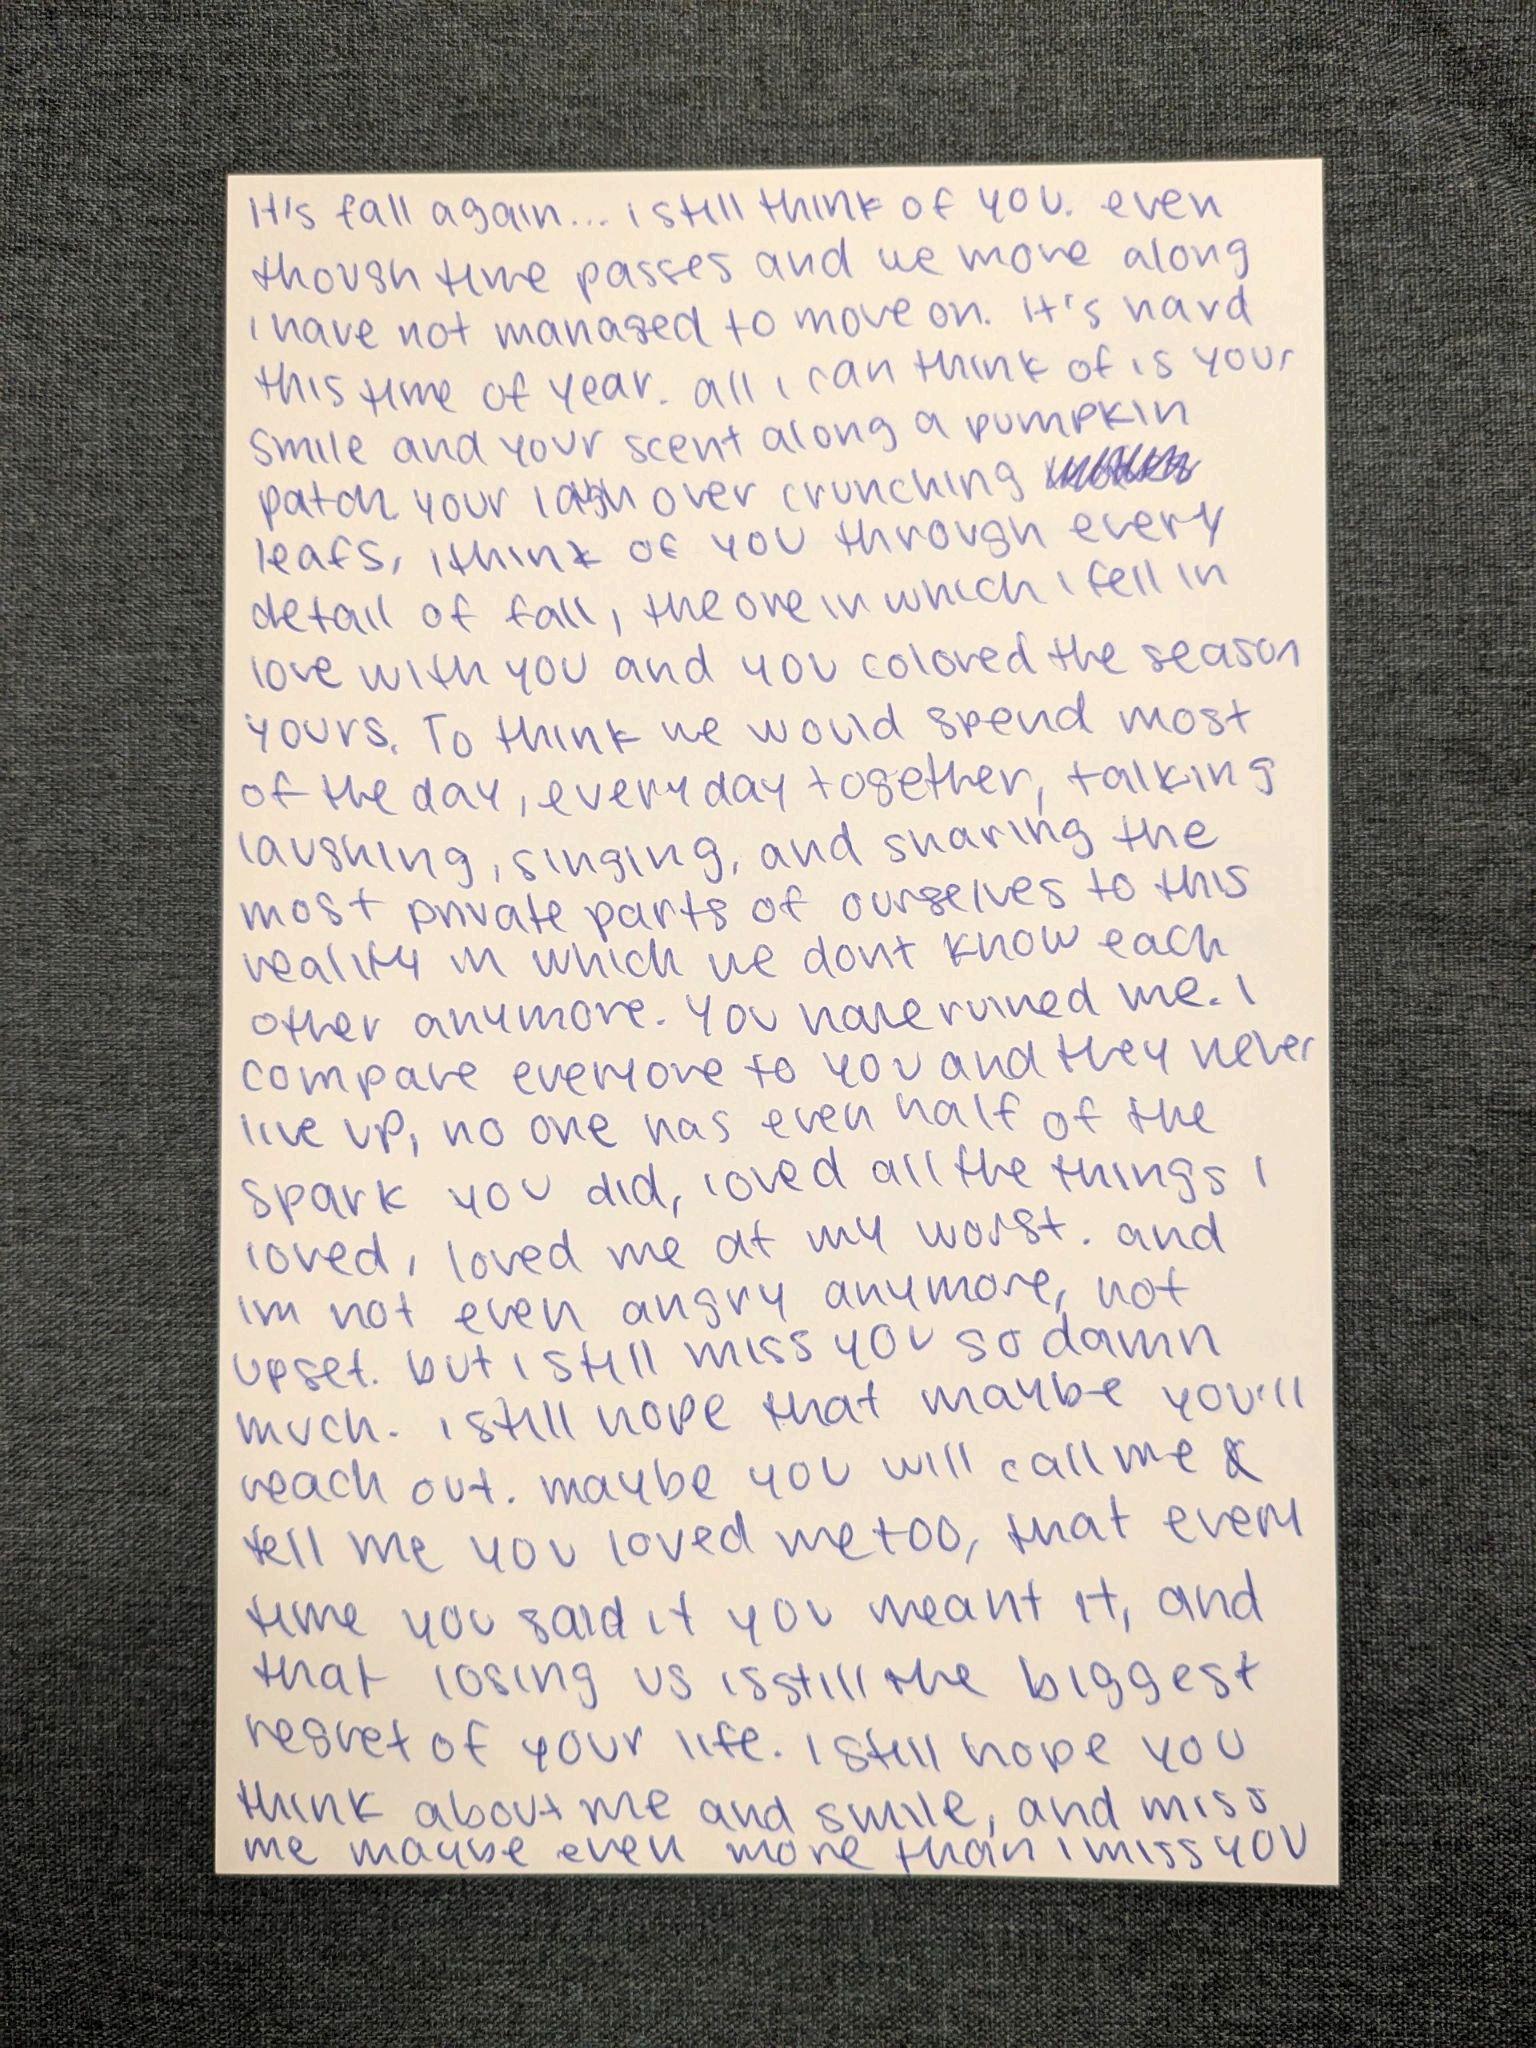 it's fall again... i still think of you. even
though time passes and we move along
i have not managed to move on. it's hard
this time of year. all i can think of is your
smile and your scent along a pumpkin
patch. your laugh over crunching
leafs, i think of you through every
detail of fall, the one in which i fell in
love with you and you colored the season
yours. To think we would spend most
of the day, everyday together, talking
laughing, singing, and sharing the
most private parts of ourselves to this
reality in which we dont know each
other anymore. you have ruined me. I
compare everyone to you and they never
live up, no one has even half of the
spark you did, loved all the things I
loved, loved me at my worst. and
im not even angry anymore, not
upset. but i still miss you so damn
much. i still hope that maybe you'll
reach out. maybe you will call me &
tell me you loved me too, that every
time you said it you meant it, and
that losing us is still the biggest
regret of your life. I still hope you
think about me and smile, and miss
me maybe even more than i miss you